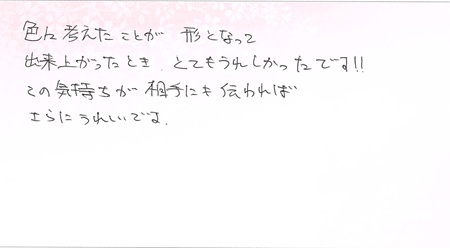 色々考えたことが 形となって
出来上がったとき、とてもうれしかったです!!
この気持ちが相手にも伝われば
さらにうれしいです。